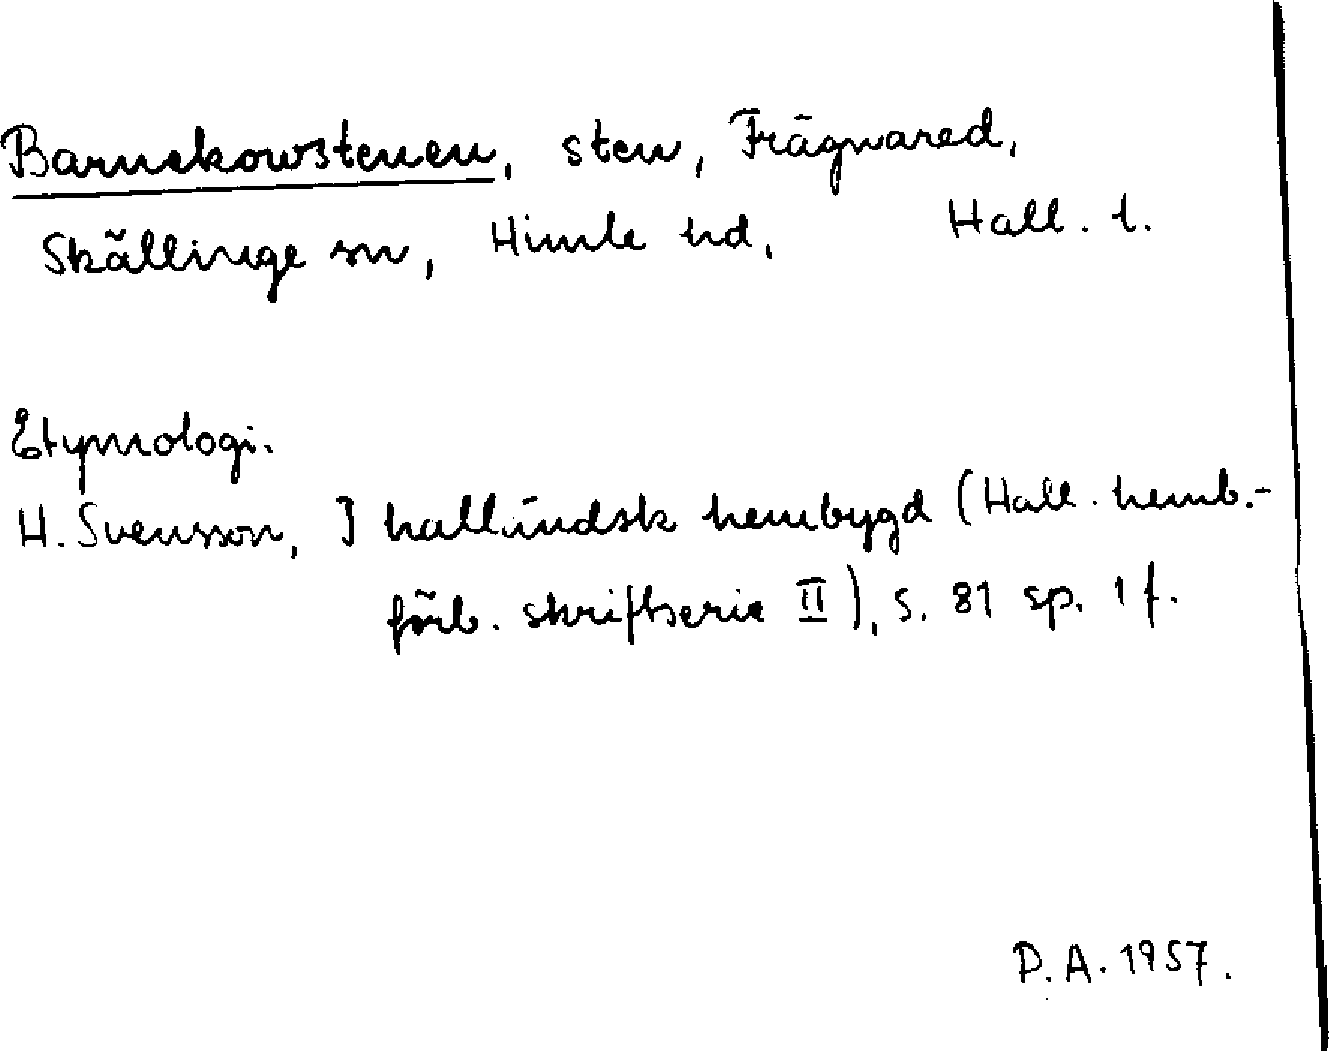 Barnekowstenen, sten, Frägnared,
Skällinge sn, Himle hd, Hall. l.
Etymologi.
H. Svensson, I halländsk hembygd (Hall. hemb.-
förb. skriftserie II), s. 81 sp. 1 f.
P.A. 1957.